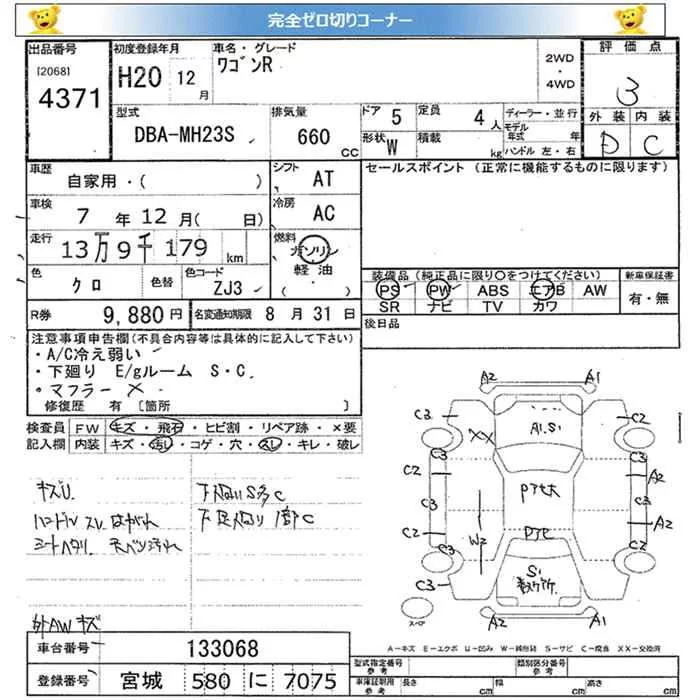 完全ゼロ切りコーナー
出品番号 初度登録年月 車名・グレード 2WD・4WD 評価点
[2068] 4371 H20 12月 ワゴンR 3
型式 排気量 ドア 5 定員 4人 ディーラー・並行 外装 内装
DBA-MH23S 660 CC 形状 W 積載 kg モデル年式 年 ハンドル 左・右 D C
車歴 自家用・( ) シフト AT セールスポイント (正常に機能するものに限ります)
車検 7年12月( 日) 冷房 AC
走行 13万9千179 km 燃料 ガソリン 軽油 ( ・ )
色 クロ 色替 色コード ZJ3 装備品(純正品に限り○をつけてください) 新車保証書
PS PW ABS エアB AW 有・無
SR ナビ TV カワ
R券 9,880円 名変通知期限 8月31日 後日品
注意事項申告欄(不具合内容等は具体的に記入して下さい)
・A/C冷え弱い
・下廻り E/gルーム S・C
・マフラー ×
修復歴 有 [箇所 ]
検査員 FW キズ・飛石・ヒビ割・リペア跡・×要
記入欄 内装 キズ・汚し・コゲ・穴・スレ・キレ・破レ
キズU 下廻りS多C
ハンドルスレ はがれ
シートヘタリ 天ベリ汚れ
外AWキズ
A2 A1
C3 XX A1.S1 C2
C3 C3
C2 A2
C3 C3
C2 W2 A2
C3 C2
C3 S1
A2 A1
スペア
A-キズ E-エクボ U-凹み W-補修跡 S-サビ C-腐食 XX-交換済
車台番号 133068
登録番号 宮城 580 に 7075
型式指定番号 参考 類別区分番号 参考
車庫証明用 参考 長さ cm 幅 cm 高さ cm